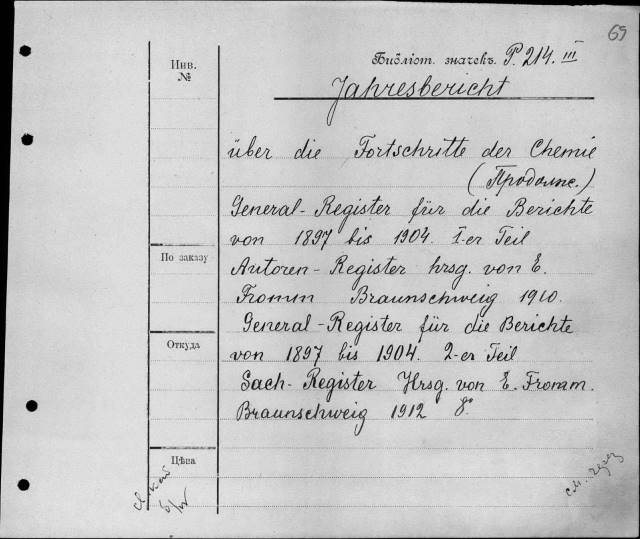 69
Инв.
№
Библіот. значекъ P. 214. III
Jahresbericht
über die Fortschritte der Chemie
(Продолж.)
General-Register für die Berichte
von 1897 bis 1904. 1-er Teil
По заказу
Autoren-Register hrsg. von E.
Fromm Braunschweig 1910.
General-Register für die Berichte
Откуда
von 1897 bis 1904. 2-er Teil
Sach-Register Hrsg. von E. Fromm.
Braunschweig 1912 8°
Цѣна
см.